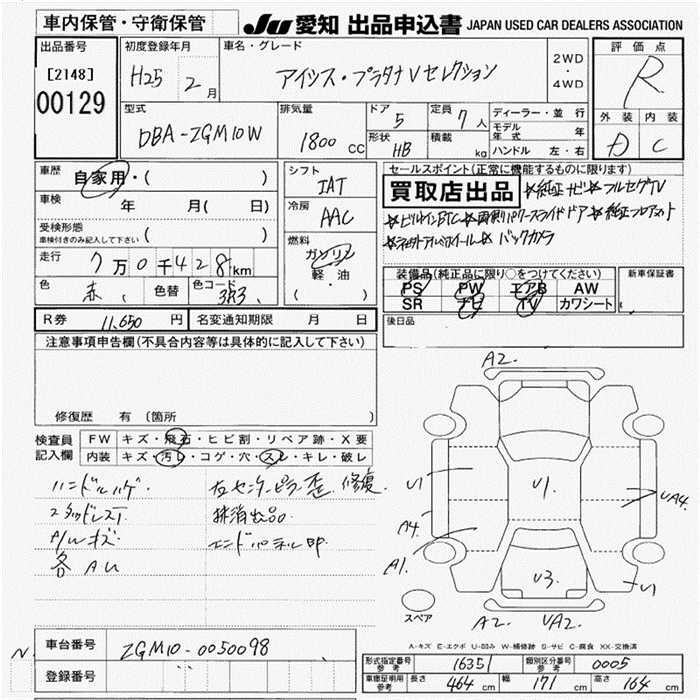 車内保管・守衛保管
JU 愛知 出品申込書 JAPAN USED CAR DEALERS ASSOCIATION
出品番号
[2148]
00129
初度登録年月
H25 2月
車名・グレード
アイシス・プラタナVセレクション
2WD
・
4WD
評価点
R
外装 内装
D C
型式
DBA-ZGM10W
排気量
1800 cc
ドア
5
定員
7人
形状
HB
積載
kg
ディーラー・並行
モデル年式 年
ハンドル 左・右
車歴
自家用・( )
車検 年 月( 日)
受検形態
車検付きのみ記入して下さい ( )
走行
7万0千428km
色 赤 色替 色コード 3R3
シフト
IAT
冷房
AAC
燃料
ガソリン
軽・油
( )
セールスポイント(正常に機能するものに限ります)
買取店出品 ☆純正ナビ☆フルセグTV
☆ビルトインETC☆両側パワースライドドア☆純正フロアマット
☆社外アルミホイール☆バックカメラ
装備品(純正品に限り○をつけてください)
PS PW エアB AW
SR ナビ TV カワシート
新車保証書
後日品
R券 11,650円 名変通知期限 月 日
注意事項申告欄(不具合内容等は具体的に記入して下さい)
修復歴 有 〔箇所
検査員記入欄
FW キズ・飛石・ヒビ割・リペア跡・X要
内装 キズ・汚レ・コゲ・穴・スレ・キレ・破レ
ハンドルハゲ.
スタッドレスT
A/Wキズ
各AU
左センターピラー歪 修復
排消出品
エンドパネル凹
A2.
U1
A4.
A1.
U1.
UA4.
U3.
U1
A2.
UA2.
スペア
A-キズ E-エクボ U-凹み W-補修跡 S-サビ C-腐食 XX-交換済
N.
車台番号 ZGM10-0050098
登録番号
形式指定番号参考 16351 類別区分番号参考 0005
車庫証明用参考 長さ 464cm 幅 171cm 高さ 164cm